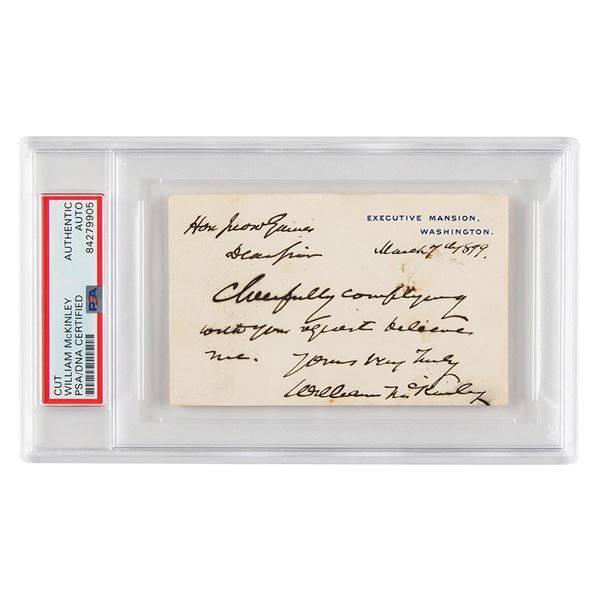 CUT
WILLIAM McKINLEY
PSA/DNA CERTIFIED
AUTHENTIC
AUTO
84279905
PSA
EXECUTIVE MANSION,
WASHINGTON.
Hon Gaines
March 7th 1899.
Dear Sir
Cheerfully complying
with your request believe
me. Yours very truly
William McKinley